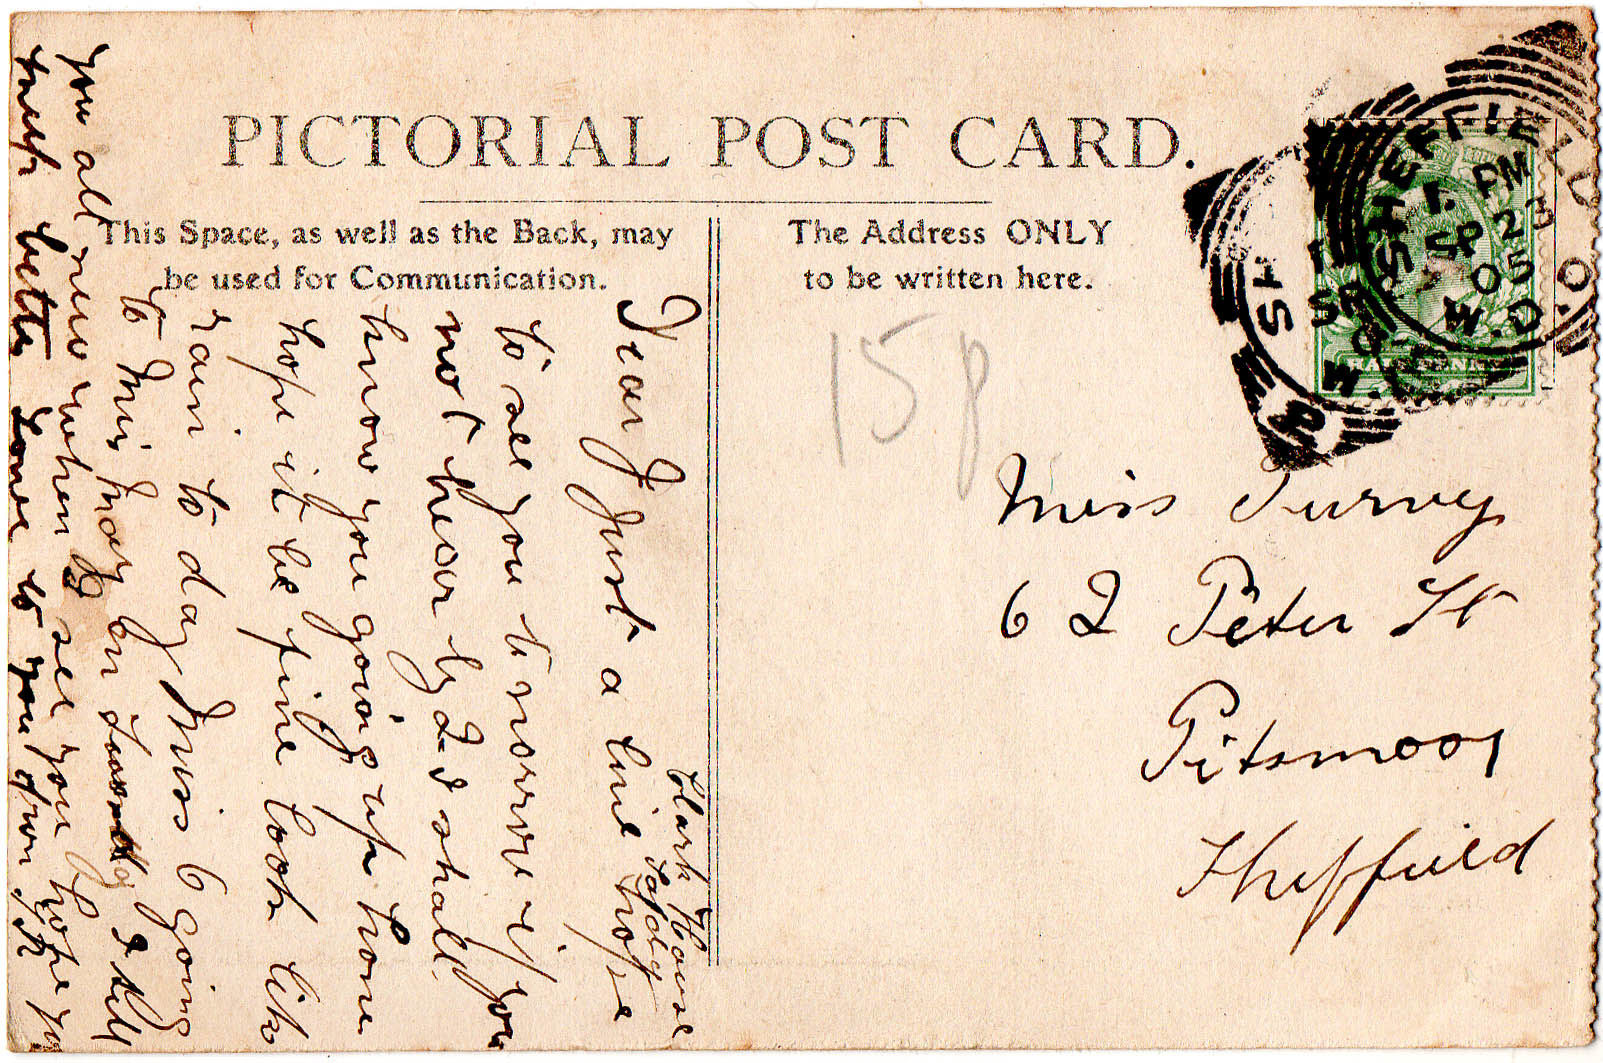 PICTORIAL POST CARD.
This Space, as well as the Back, may
be used for Communication.
The Address ONLY
to be written here.
SHEFFIELD
1. PM
SP 23
05
W.D
HALFPENNY
15p
Miss Turvey
62 Peter St
Pitsmoor
Sheffield
Clark House
Saturday
Dear J Just a line hope
to see you to norrow if you
not hear by 2. I shall
know you going up home
hope it be fine look like
rain to day Miss G going
to Mis May on I tell
you all news when I see you hope yr
tooth better Love to you from